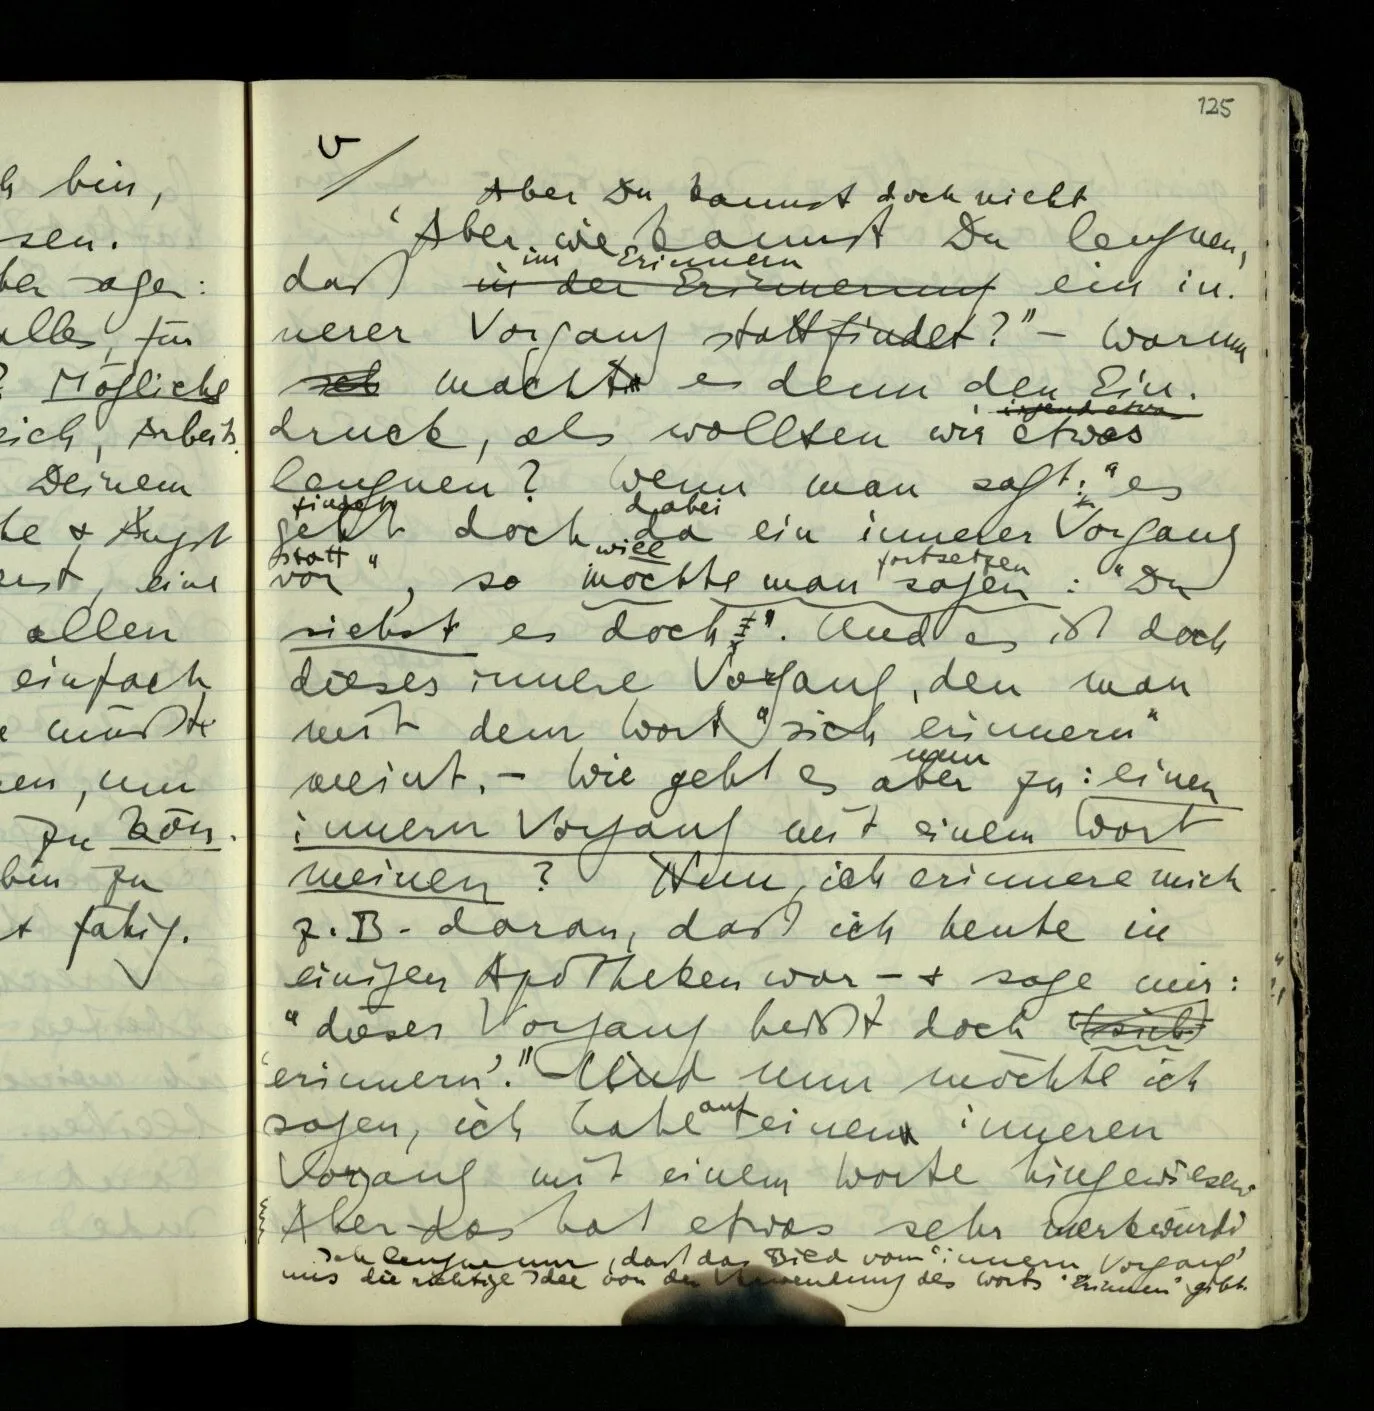 h bin,
sen.
ber sagen:
alles, für
? Mögliche
eich, Arbeits
Deinem
te & Angst
erst, eine
allen
einfach
e müßte
en, um
zu kön-
bin zu
t fähig.
125
Aber Du kannst doch nicht
'Aber wie kannst Du leugnen,
im Erinnern
daß in der Erinnerung ein in-
nerer Vorgang stattfindet?" – Warum
macht es denn den Ein-
irgend etwa
druck, als wollten wir etwas
leugnen? Wenn man sagt: "es
findet dabei
geht doch da ein innerer Vorgang
statt will fortsetzen
vor", so möchte man sagen: "Du
siehst es doch". Und es ist doch
dieser innere Vorgang, den man
mit dem Wort "sich erinnern"
nun
meint. – Wie geht es aber zu: einen
innern Vorgang mit einem Wort
meinen? Nun, ich erinnere mich
z.B. daran, daß ich heute in
einigen Apotheken war – & sage mir:
"dieser Vorgang heißt doch (sich)
'erinnern'." – Und nun möchte ich
auf
sagen, ich habe einen inneren
Vorgang mit einem Worte hingewiesen
Aber das hat etwas sehr merkwürdi
Ich leugne nur, daß das Bild vom 'innern Vorgang'
uns die richtige Idee von der Verwendung des Worts 'Erinnern' gibt.